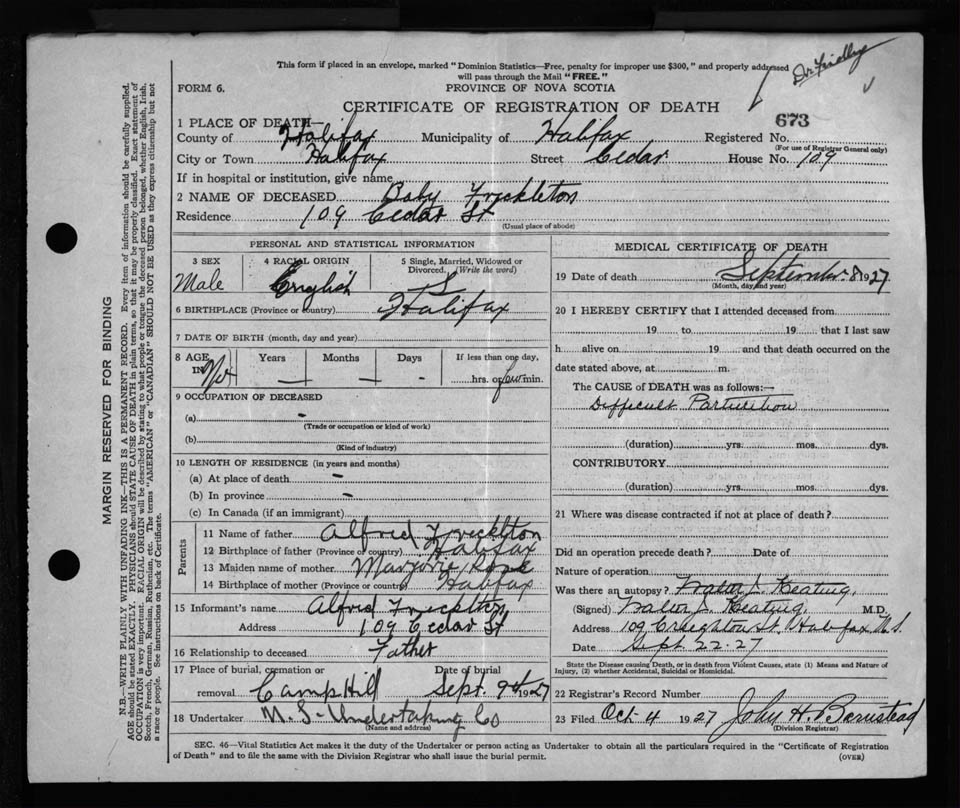 Dr Findlay
This form if placed in an envelope, marked "Dominion Statistics—Free, penalty for improper use $300," and properly addressed
will pass through the Mail "FREE."
FORM 6.
PROVINCE OF NOVA SCOTIA
CERTIFICATE OF REGISTRATION OF DEATH
673
1 PLACE OF DEATH—
County of Halifax Municipality of Halifax Registered No.
(For use of Registrar General only)
City or Town Halifax Street Cedar House No. 109
If in hospital or institution, give name
2 NAME OF DECEASED Baby Freckleton
Residence 109 Cedar St
(Usual place of abode)
PERSONAL AND STATISTICAL INFORMATION
3 SEX
Male
4 RACIAL ORIGIN
English
5 Single, Married, Widowed or
Divorced. (Write the word)
S
6 BIRTHPLACE (Province or country) Halifax
7 DATE OF BIRTH (month, day and year)
8 AGE Years Months Days If less than one day,
IN — — - hrs. or few min.
9 OCCUPATION OF DECEASED
(a) -
(Trade or occupation or kind of work)
(b)
(Kind of industry)
10 LENGTH OF RESIDENCE (in years and months)
(a) At place of death -
(b) In province -
(c) In Canada (if an immigrant)
Parents
11 Name of father Alfred Freckleton
12 Birthplace of father (Province or country) Halifax
13 Maiden name of mother Marjorie
14 Birthplace of mother (Province or country) Halifax
15 Informant's name Alfred Freckleton
Address 109 Cedar St
16 Relationship to deceased Father
17 Place of burial, cremation or Date of burial
removal Camp Hill Sept. 9th 1927
18 Undertaker N. S. Undertaking Co
(Name and address)
MEDICAL CERTIFICATE OF DEATH
19 Date of death September 8 1927
(Month, day and year)
20 I HEREBY CERTIFY that I attended deceased from
19 to 19 that I last saw
h alive on 19 and that death occurred on the
date stated above, at m.
The CAUSE of DEATH was as follows:—
Difficult Parturition
(duration) yrs. mos. dys.
CONTRIBUTORY
(duration) yrs. mos. dys.
21 Where was disease contracted if not at place of death?
Did an operation precede death? Date of
Nature of operation
Was there an autopsy? Walter J. Keating.
(Signed) Walter J. Keating. M.D.
Address 109 Creighton St. Halifax N.S.
Date Sept. 22-27
State the Disease causing Death, or in death from Violent Causes, state (1) Means and Nature of
Injury, (2) whether Accidental, Suicidal or Homicidal.
22 Registrar's Record Number
23 Filed Oct 4 1927 John H. Barnstead
(Division Registrar)
SEC. 46—Vital Statistics Act makes it the duty of the Undertaker or person acting as Undertaker to obtain all the particulars required in the "Certificate of Registration
of Death" and to file the same with the Division Registrar who shall issue the burial permit.
(OVER)
MARGIN RESERVED FOR BINDING
N.B.—WRITE PLAINLY WITH UNFADING INK—THIS IS A PERMANENT RECORD. Every item of information should be carefully supplied.
AGE should be stated EXACTLY. PHYSICIANS should STATE CAUSE OF DEATH in plain terms, so that it may be properly classified. Exact statement of
OCCUPATION is very important. RACIAL ORIGIN will be described by stating to what people or tongue the deceased person belonged, whether English, Irish,
Scotch, French, German, Russian, Ruthenian, etc. The terms "AMERICAN" or "CANADIAN" SHOULD NOT BE USED as they express citizenship but not
a race or people. See instructions on back of Certificate.